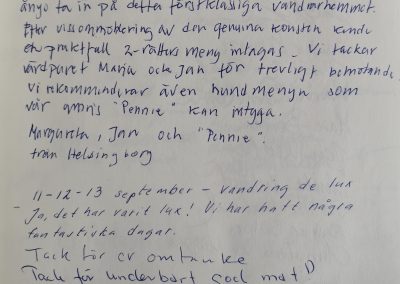 ångo ta in på detta förstklassiga vandrarhemmet.
Efter vissommokering av den genuina konsten kunde
en praktfull 2-rätters meny intagas. Vi tackar
värdparet Marja och Jan för trevligt bemötande.
Vi rekommenderar även hundmenyn som
vår "Pennie" kan intyga.
Margareta, Jan och "Pennie".
från Helsingborg
11-12-13 september - vandring de lux
- Ja, det har varit lux! Vi har haft några
fantastiska dagar.
Tack för er omtanke
Tack för underbart god mat